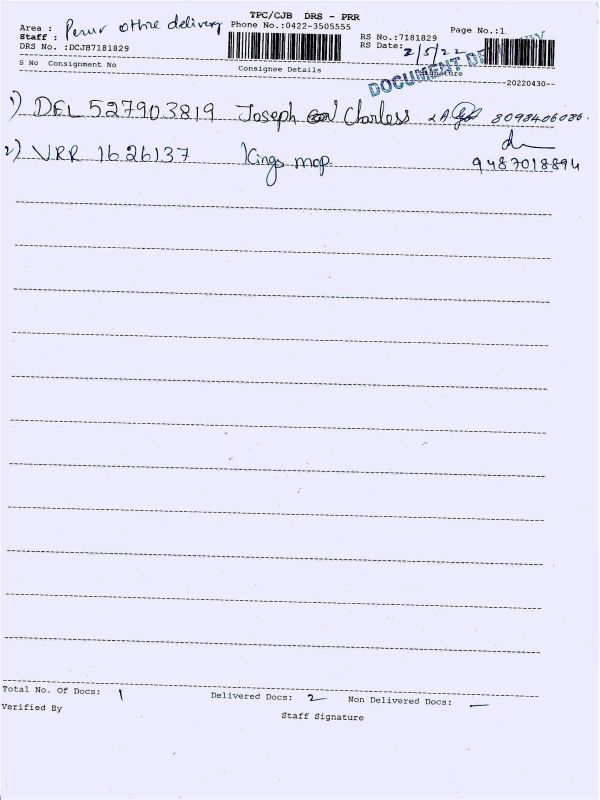 TPC/CJB DRS - PRR
Area : Perur othre delivery Phone No.:0422-3505555 Page No.:1
Staff : RS No.:7181829
DRS No. :DCJB7181829 RS Date: 2/5/22
DOCUMENT DELIVERY
S No Consignment No Consignee Details Signature
--20220430--
1) DEL 527903819 Joseph Charless 8098406086.
2) VRR 1626137 Kings map 9487018894
Total No. Of Docs: 1 Delivered Docs: 2 Non Delivered Docs: —
Verified By Staff Signature